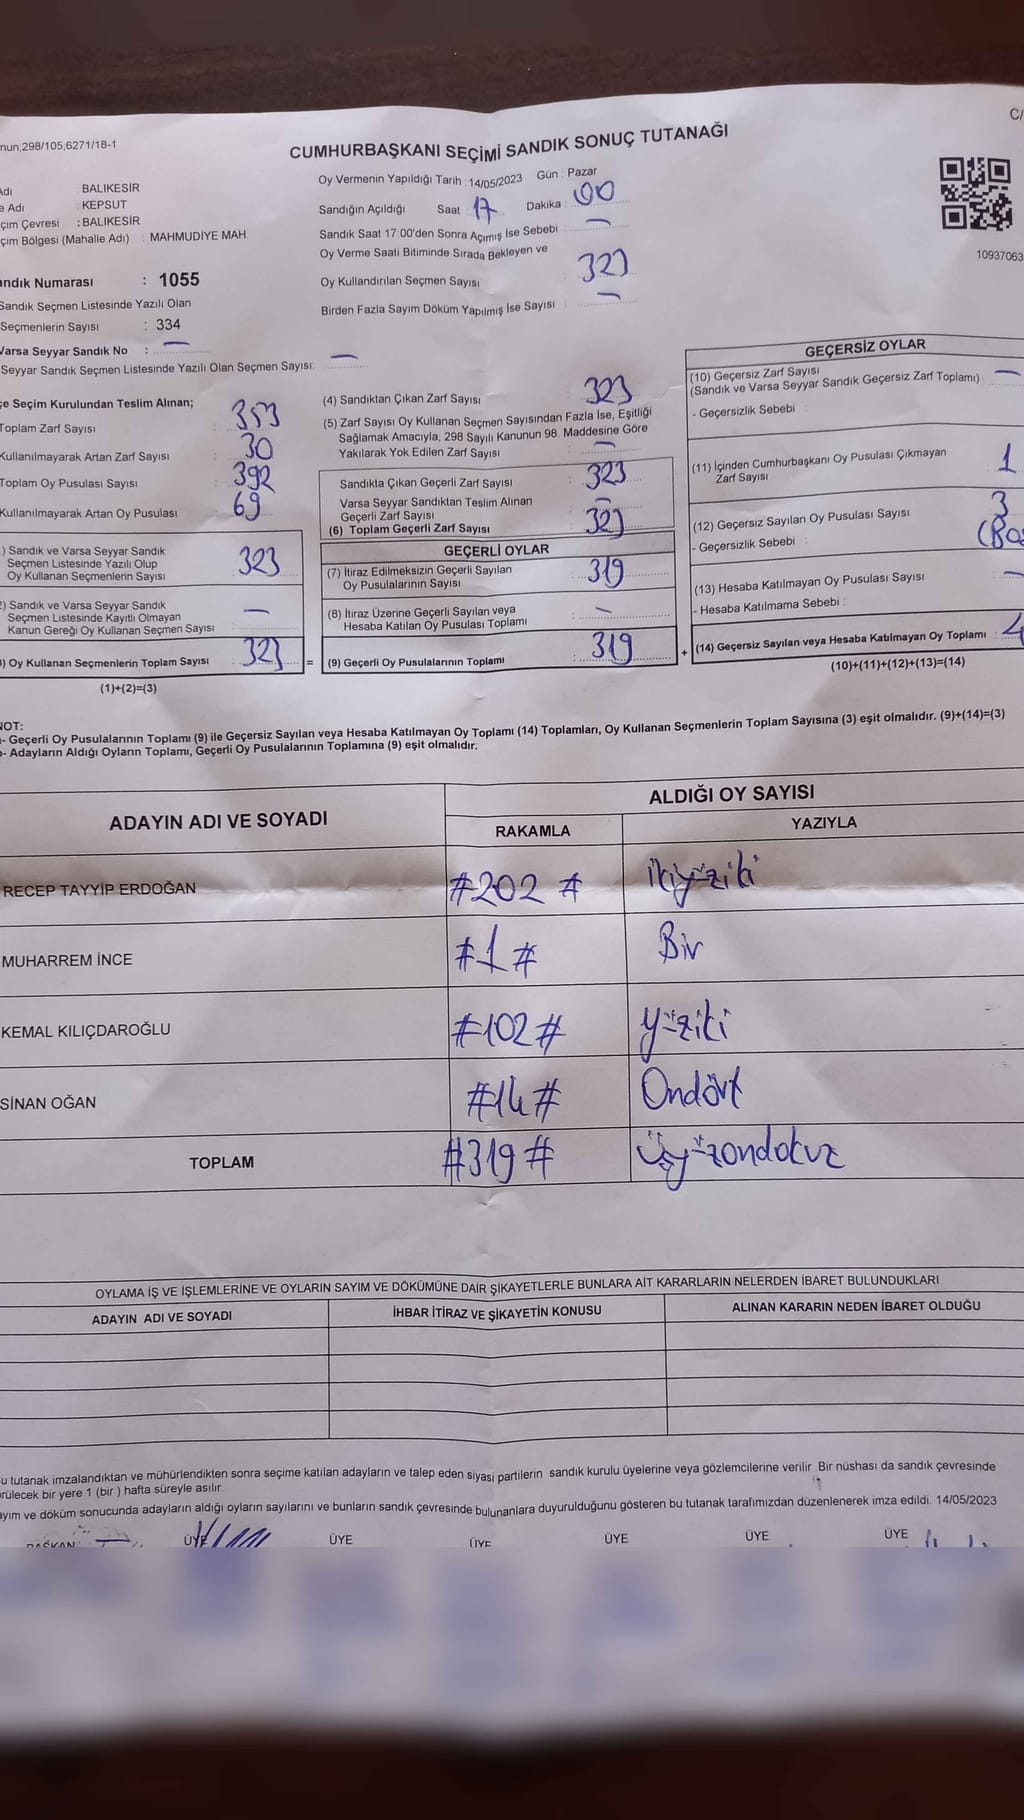 nun,298/105,6271/18-1
C/
CUMHURBAŞKANI SEÇİMİ SANDIK SONUÇ TUTANAĞI
Adı : BALIKESİR
e Adı : KEPSUT
çim Çevresi : BALIKESİR
çim Bölgesi (Mahalle Adı) : MAHMUDİYE MAH.
Oy Vermenin Yapıldığı Tarih : 14/05/2023 Gün : Pazar
Sandığın Açıldığı Saat : 17 Dakika : 00
Sandık Saat 17:00'den Sonra Açımış İse Sebebi : —
Oy Verme Saati Bitiminde Sırada Bekleyen ve
Oy Kullandırılan Seçmen Sayısı : 323
Birden Fazla Sayım Döküm Yapılmış İse Sayısı : —
10937063
andık Numarası : 1055
Sandık Seçmen Listesinde Yazılı Olan
Seçmenlerin Sayısı : 334
Varsa Seyyar Sandık No : —
Seyyar Sandık Seçmen Listesinde Yazılı Olan Seçmen Sayısı: —
çe Seçim Kurulundan Teslim Alınan;
Toplam Zarf Sayısı : 353
Kullanılmayarak Artan Zarf Sayısı : 30
Toplam Oy Pusulası Sayısı : 392
Kullanılmayarak Artan Oy Pusulası : 69
) Sandık ve Varsa Seyyar Sandık
Seçmen Listesinde Yazılı Olup
Oy Kullanan Seçmenlerin Sayısı : 323
2) Sandık ve Varsa Seyyar Sandık
Seçmen Listesinde Kayıtlı Olmayan
Kanun Gereği Oy Kullanan Seçmen Sayısı : —
) Oy Kullanan Seçmenlerin Toplam Sayısı : 323 =
(1)+(2)=(3)
(4) Sandıktan Çıkan Zarf Sayısı : 323
(5) Zarf Sayısı Oy Kullanan Seçmen Sayısından Fazla İse, Eşitliği
Sağlamak Amacıyla, 298 Sayılı Kanunun 98. Maddesine Göre
Yakılarak Yok Edilen Zarf Sayısı : —
Sandıkta Çıkan Geçerli Zarf Sayısı : 323
Varsa Seyyar Sandıktan Teslim Alınan
Geçerli Zarf Sayısı : —
(6) Toplam Geçerli Zarf Sayısı : 323
GEÇERLİ OYLAR
(7) İtiraz Edilmeksizin Geçerli Sayılan
Oy Pusulalarının Sayısı : 319
(8) İtiraz Üzerine Geçerli Sayılan veya
Hesaba Katılan Oy Pusulası Toplamı : —
(9) Geçerli Oy Pusulalarının Toplamı : 319 +
GEÇERSİZ OYLAR
(10) Geçersiz Zarf Sayısı
(Sandık ve Varsa Seyyar Sandık Geçersiz Zarf Toplamı) : —
- Geçersizlik Sebebi :
(11) İçinden Cumhurbaşkanı Oy Pusulası Çıkmayan
Zarf Sayısı : 1
(12) Geçersiz Sayılan Oy Pusulası Sayısı : 3
- Geçersizlik Sebebi :
(13) Hesaba Katılmayan Oy Pusulası Sayısı : —
- Hesaba Katılmama Sebebi :
(14) Geçersiz Sayılan veya Hesaba Katılmayan Oy Toplamı : 4
(10)+(11)+(12)+(13)=(14)
NOT:
- Geçerli Oy Pusulalarının Toplamı (9) ile Geçersiz Sayılan veya Hesaba Katılmayan Oy Toplamı (14) Toplamları, Oy Kullanan Seçmenlerin Toplam Sayısına (3) eşit olmalıdır. (9)+(14)=(3)
- Adayların Aldığı Oyların Toplamı, Geçerli Oy Pusulalarının Toplamına (9) eşit olmalıdır.
ADAYIN ADI VE SOYADI
ALDIĞI OY SAYISI
RAKAMLA YAZIYLA
RECEP TAYYİP ERDOĞAN #202# ikiyüziki
MUHARREM İNCE #1# Bir
KEMAL KILIÇDAROĞLU #102# yüziki
SİNAN OĞAN #14# Ondört
TOPLAM #319# üçyüzondokuz
OYLAMA İŞ VE İŞLEMLERİNE VE OYLARIN SAYIM VE DÖKÜMÜNE DAİR ŞİKAYETLERLE BUNLARA AİT KARARLARIN NELERDEN İBARET BULUNDUKLARI
ADAYIN ADI VE SOYADI İHBAR İTİRAZ VE ŞİKAYETİN KONUSU ALINAN KARARIN NEDEN İBARET OLDUĞU
u tutanak imzalandıktan ve mühürlendikten sonra seçime katılan adayların ve talep eden siyasi partilerin sandık kurulu üyelerine veya gözlemcilerine verilir. Bir nüshası da sandık çevresinde
rülecek bir yere 1 (bir) hafta süreyle asılır.
ayım ve döküm sonucunda adayların aldığı oyların sayılarını ve bunların sandık çevresinde bulunanlara duyurulduğunu gösteren bu tutanak tarafımızdan düzenlenerek imza edildi. 14/05/2023
BAŞKAN ÜYE ÜYE ÜYE ÜYE ÜYE ÜYE